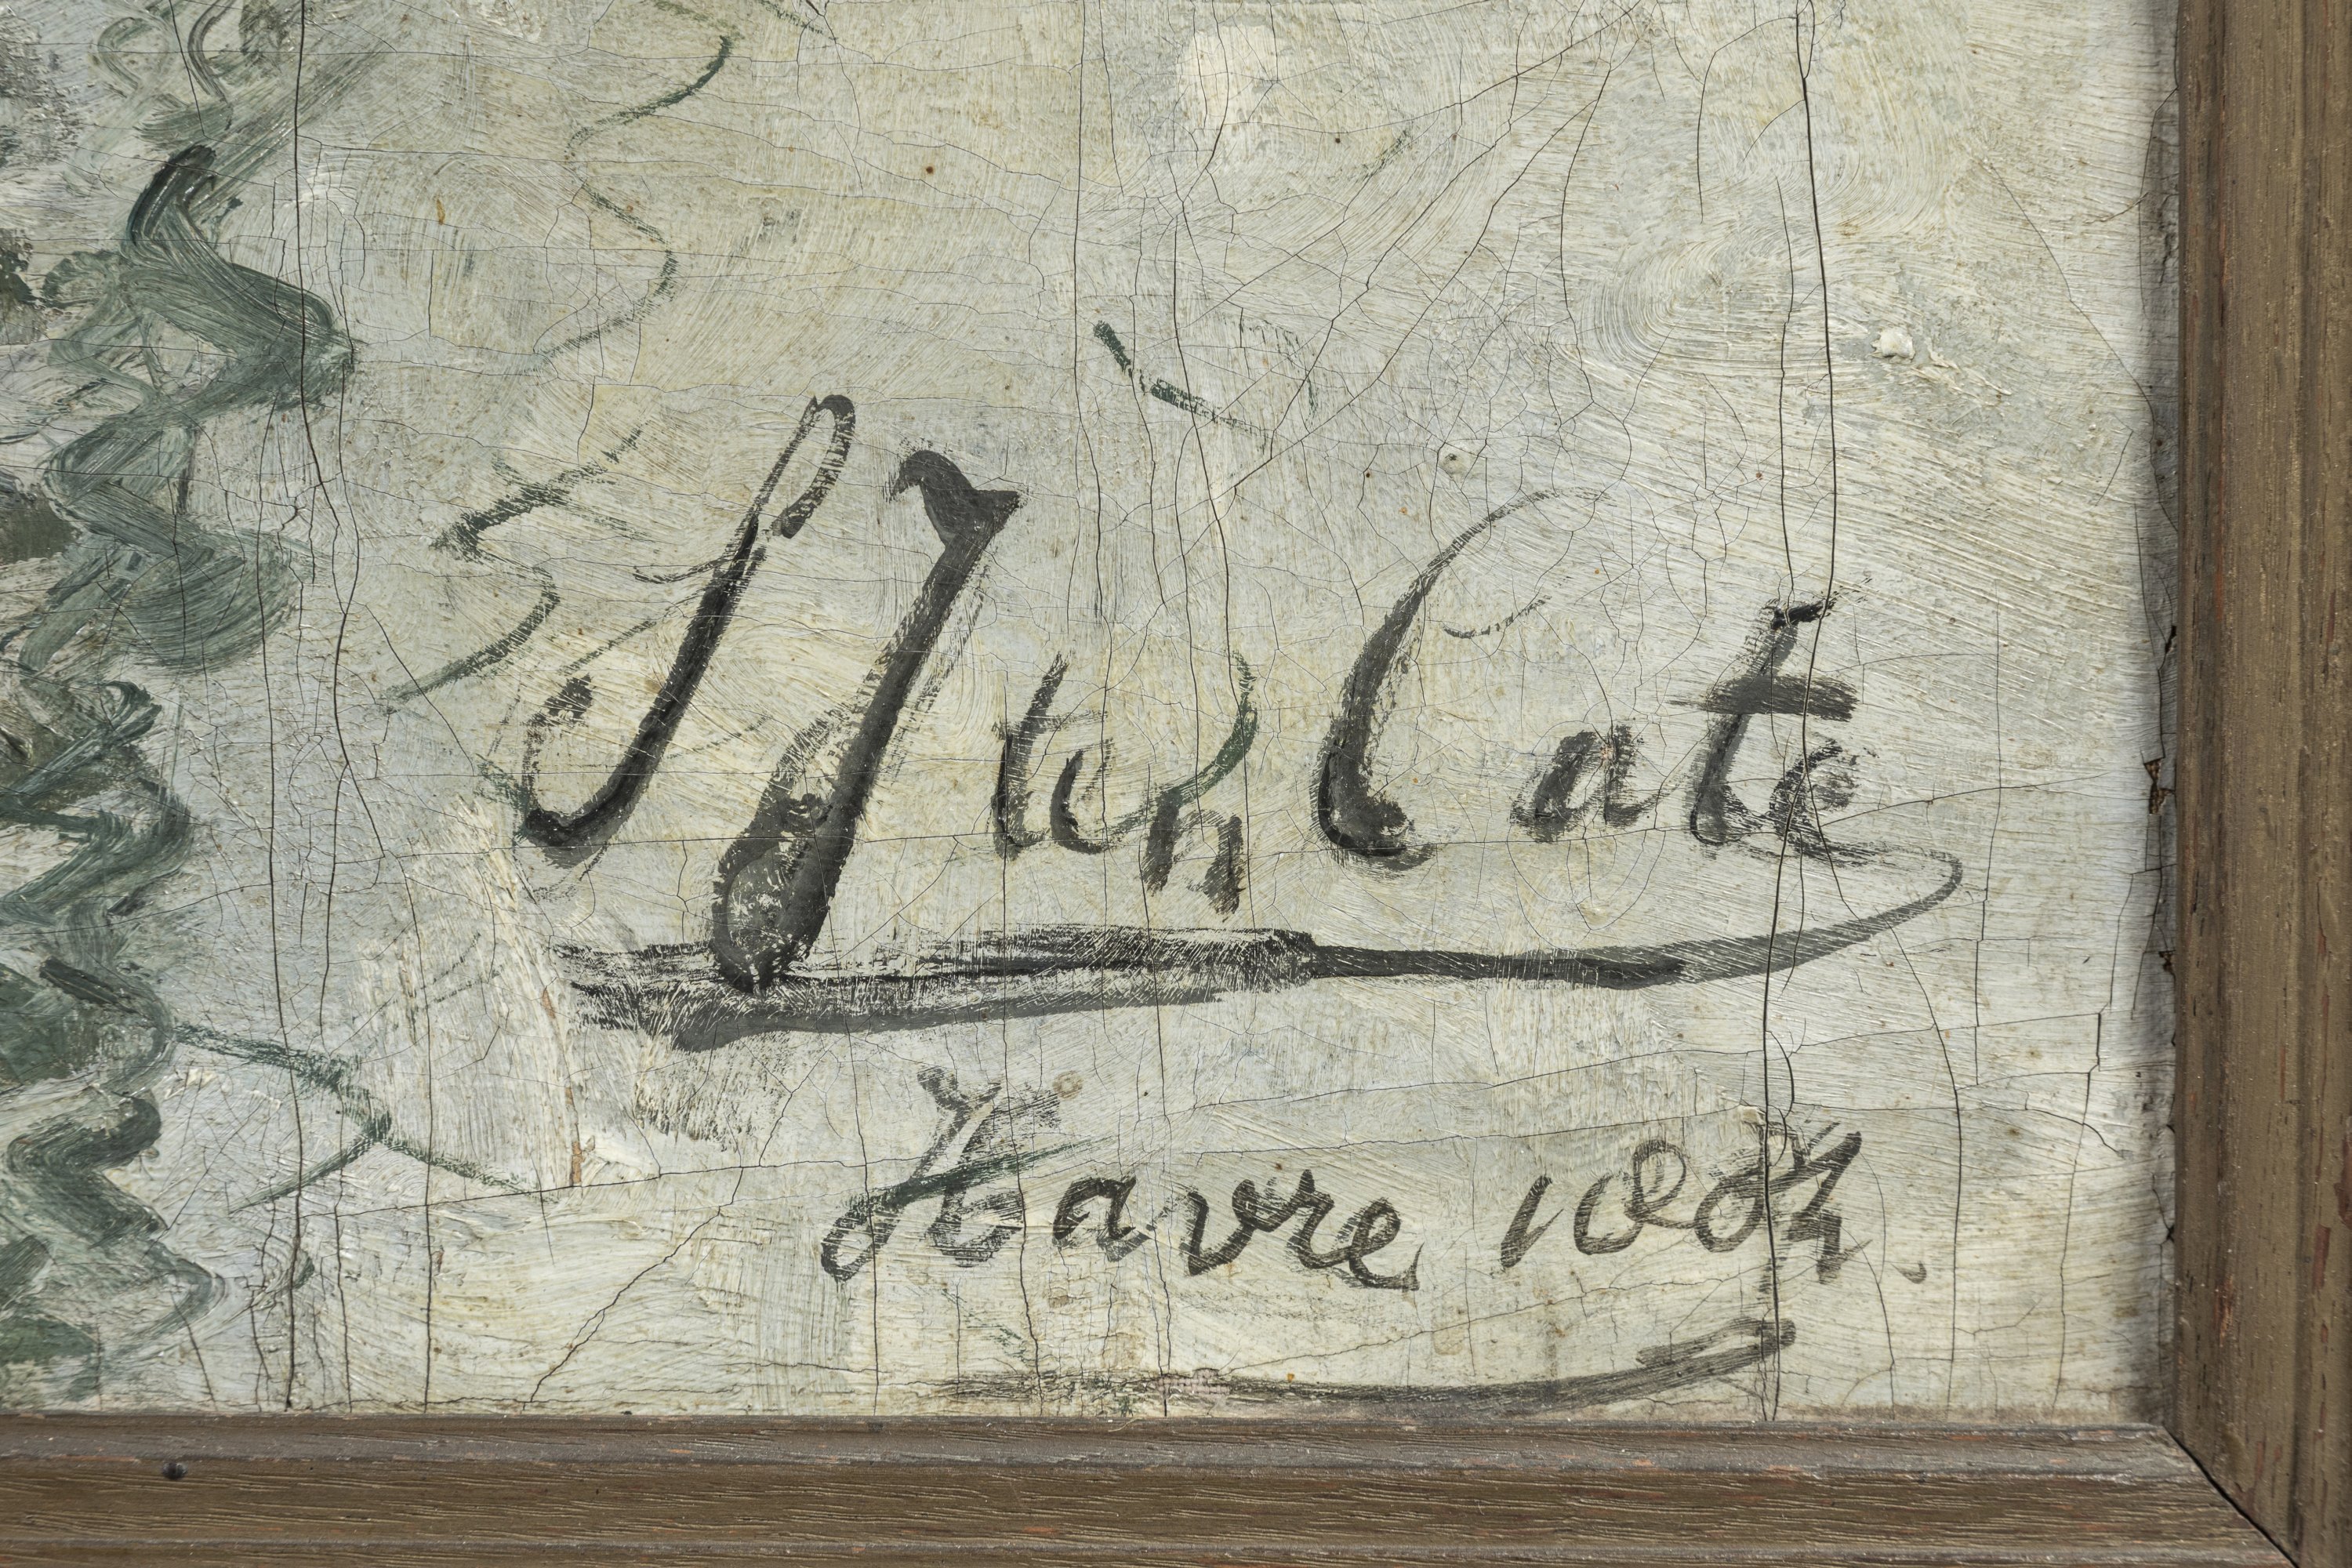 S J ten Cate
Havre 1884.